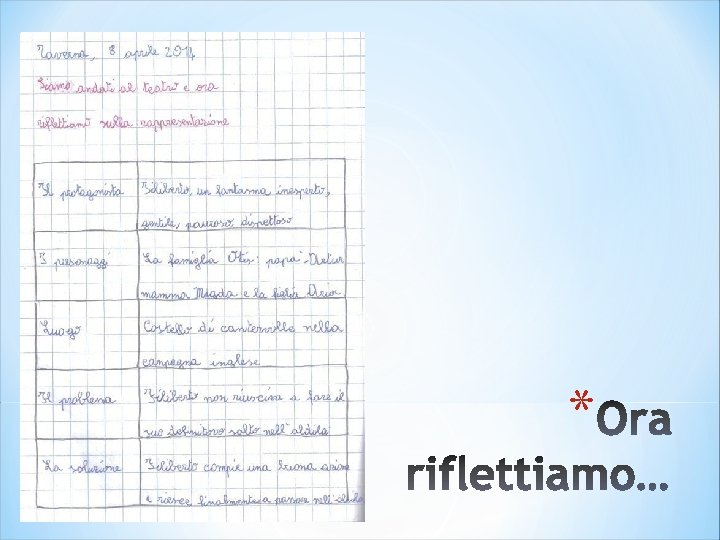 Taverna, 8 aprile 2014
Siamo andati al teatro e ora
riflettiamo sulla rappresentazione
Il protagonista
Filiberto, un fantasma inesperto,
gentile, pauroso, dispettoso
I personaggi
La famiglia Otis: papà
mamma e la figlia
Luogo
Costello di canterville nella
canpagna inglese
Il problema
Filiberto non riusciva a fare il
suo definitivo salto nell'aldula
La soluzione
Filiberto compie una buona azione
e riesce finalmente a passare nell'
* Ora
riflettiamo...